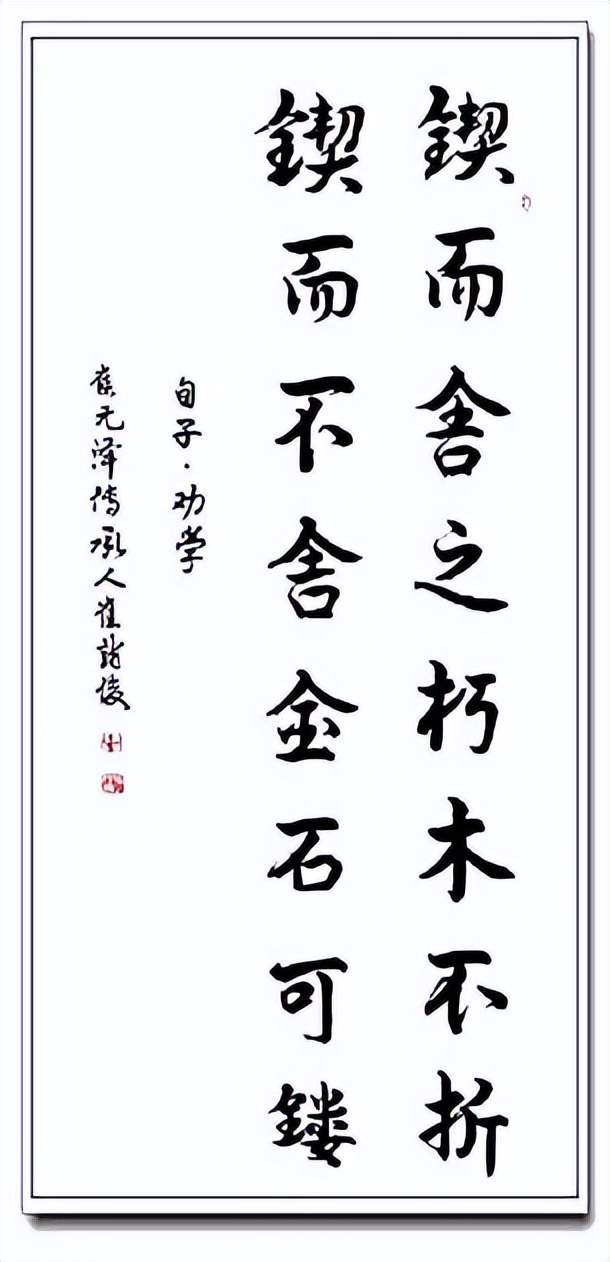 鍥而舍之朽木不折
鍥而不舍金石可镂
旬子·劝学
崔无泽传承人崔